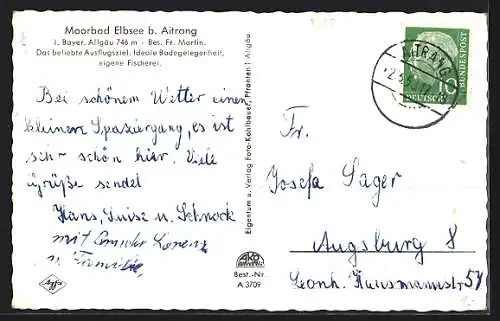 Moorbad Elbsee b. Aitrang
i. Bayer. Allgäu 746 m - Bes. Fr. Martin.
Das beliebte Ausflugsziel. Ideale Badegelegenheit,
eigene Fischerei.
Bei schönem Wetter einen
kleinen Spaziergang, es ist
sehr schön hier. Viele
Grüße sendet
Hans, Luise u.
mit
u. Familie
Agfa
Eigentum u. Verlag Foto-Kohlbauer, Pfronten i. Allgäu
AKO
Best.-Nr.
A 3709
AITRANG
10
DEUTSCHE
BUNDESPOST
Fr.
Josefa Sager
Augsburg 8
Leonh. Hausmannstr 54